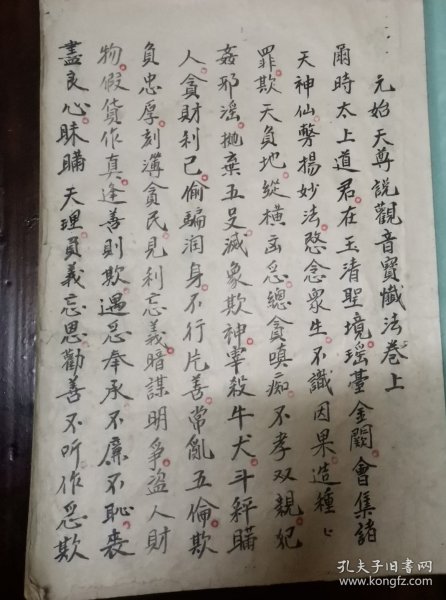 元始天尊說觀音寶懺法卷上
爾時太上道君在玉清聖境瑶臺金闕會集諸
天神仙擊揚妙法愍念衆生不識因果造種ヒ
罪欺天負地縱橫㐫惡總貪嗔痴不孝双親妃
姦邪淫抛棄五旻滅象欺神宰殺牛犬斗秤瞞
人貪財利已偷騙润身不行片善常亂五倫欺
負忠厚刻薄貧民見利忘義暗謀明爭盗人財
物假貨作真逢善則欺遇惡奉承不廉不恥丧
盡良心昧瞞天理負義忘恩勸善不听作惡欺
孔夫子旧书网
www.kongfz.com